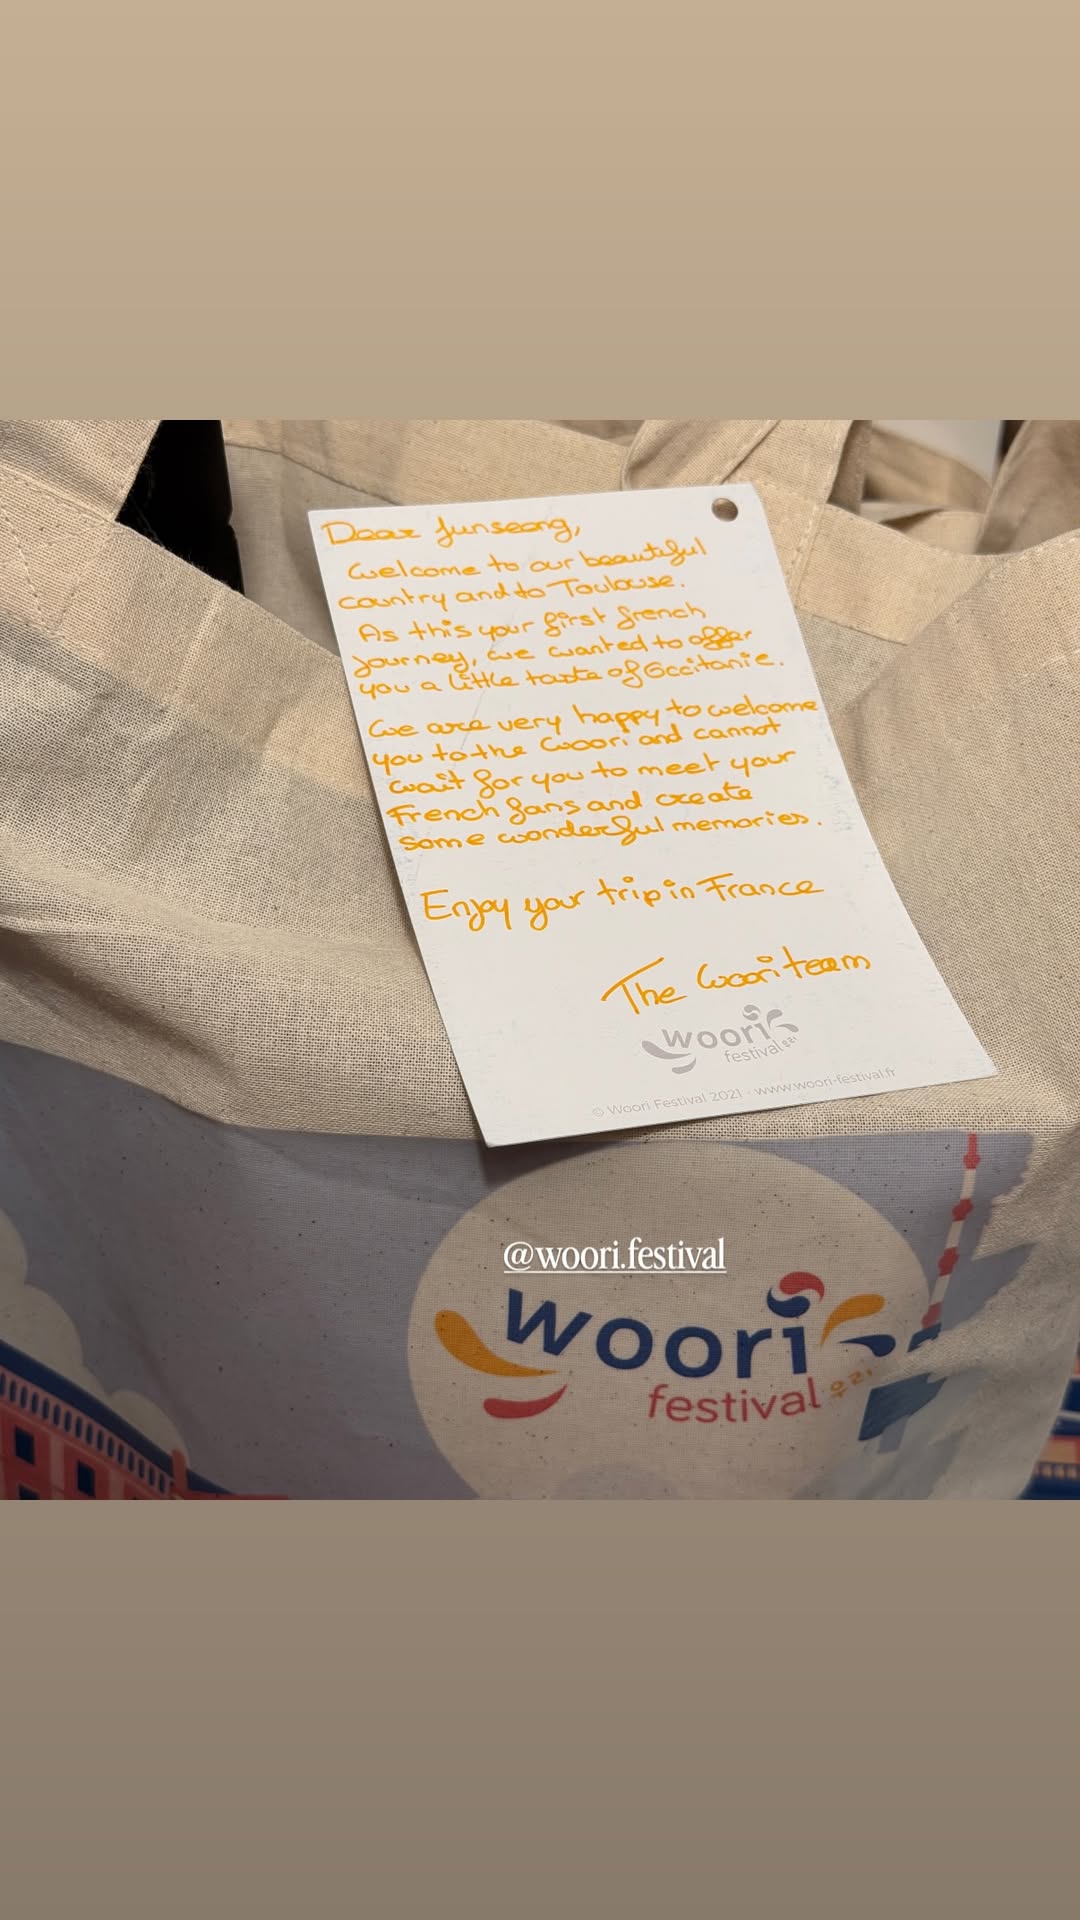 Dear Junseong,
Welcome to our beautiful
country and to Toulouse.
As this your first french
journey, we wanted to offer
you a little taste of Occitanie.
We are very happy to welcome
you to the Woori and cannot
wait for you to meet your
French fans and create
some wonderful memories.
Enjoy your trip in France
The Woori team
woori
festival 우리
© Woori Festival 2021 - www.woori-festival.fr
@woori.festival
woori
festival 우리